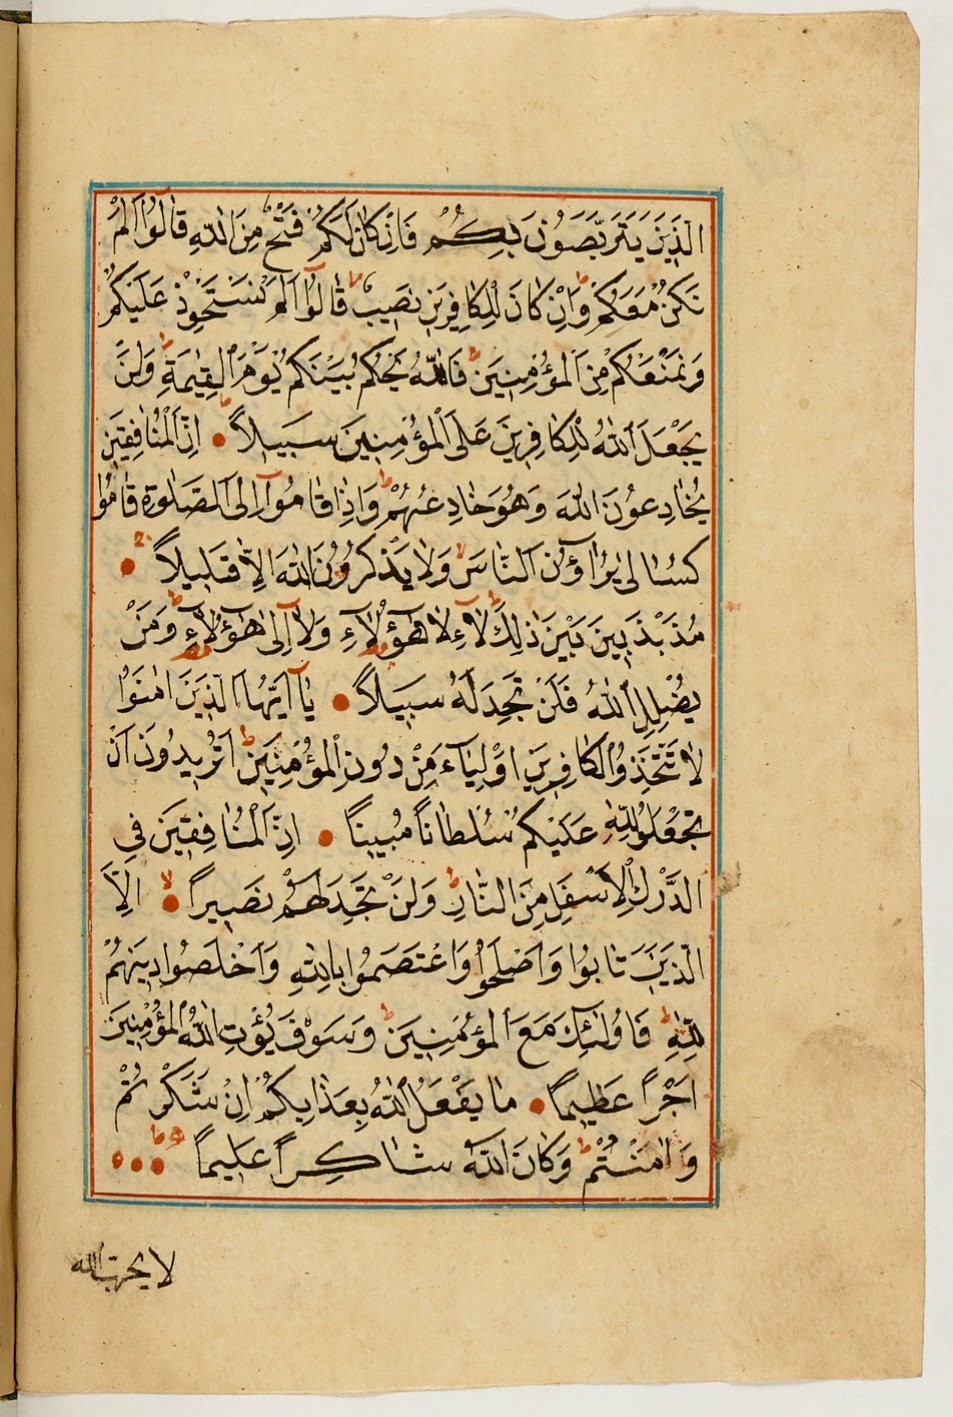 اَلَّذِينَ يَتَرَبَّصُونَ بِكُمْ فَاِنْ كَانَ لَكُمْ فَتْحٌ مِنَ اللّٰهِ قَالُوٓا اَلَمْ
نَكُنْ مَعَكُمْ وَاِنْ كَانَ لِلْكَافِرِينَ نَصِيبٌ قَالُوٓا اَلَمْ نَسْتَحْوِذْ عَلَيْكُمْ
وَنَمْنَعْكُمْ مِنَ الْمُؤْمِنِينَ فَاللّٰهُ يَحْكُمُ بَيْنَكُمْ يَوْمَ الْقِيٰمَةِ وَلَنْ
يَجْعَلَ اللّٰهُ لِلْكَافِرِينَ عَلَى الْمُؤْمِنِينَ سَبِيلاً اِنَّ الْمُنَافِقِينَ
يُخَادِعُونَ اللّٰهَ وَهُوَ خَادِعُهُمْ وَاِذَا قَامُوٓا اِلَى الصَّلٰوةِ قَامُوا
كُسَالٰى يُرَاؤُنَ النَّاسَ وَلَا يَذْكُرُونَ اللّٰهَ اِلَّا قَلِيلاً
مُذَبْذَبِينَ بَيْنَ ذٰلِكَ لَٓا اِلٰى هٰٓؤُلَٓاءِ وَلَٓا اِلٰى هٰٓؤُلَٓاءِ وَمَنْ
يُضْلِلِ اللّٰهُ فَلَنْ تَجِدَ لَهُ سَبِيلاً يَٓا اَيُّهَا الَّذِينَ اٰمَنُوا
لَا تَتَّخِذُوا الْكَافِرِينَ اَوْلِيَٓاءَ مِنْ دُونِ الْمُؤْمِنِينَ اَتُرِيدُونَ اَنْ
تَجْعَلُوا لِلّٰهِ عَلَيْكُمْ سُلْطَاناً مُبِيناً اِنَّ الْمُنَافِقِينَ فِي
الدَّرْكِ الْاَسْفَلِ مِنَ النَّارِ وَلَنْ تَجِدَ لَهُمْ نَصِيراً اِلَّا
الَّذِينَ تَابُوا وَاَصْلَحُوا وَاعْتَصَمُوا بِاللّٰهِ وَاَخْلَصُوا دِينَهُمْ
لِلّٰهِ فَاُولٰٓئِكَ مَعَ الْمُؤْمِنِينَ وَسَوْفَ يُؤْتِ اللّٰهُ الْمُؤْمِنِينَ
اَجْراً عَظِيماً مَا يَفْعَلُ اللّٰهُ بِعَذَابِكُمْ اِنْ شَكَرْتُمْ
وَاٰمَنْتُمْ وَكَانَ اللّٰهُ شَاكِراً عَلِيماً
لا يحب الله